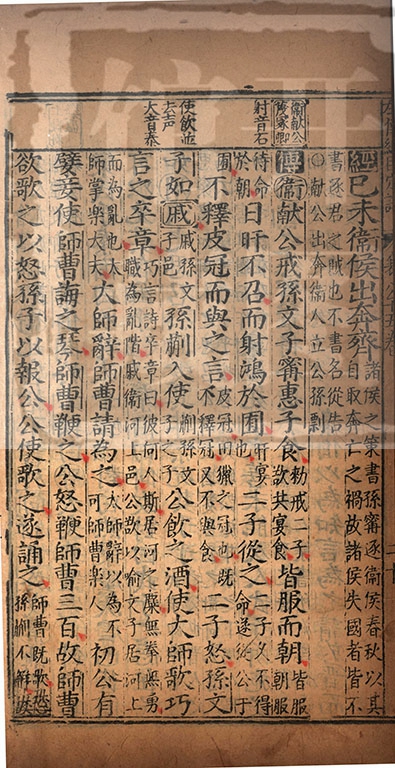 經己未衞侯出奔齊諸侯之策書孫甯逐衞侯春秋以其自取奔亡之禍故諸侯失國者皆不
書逐君之賊也不書名從告○獻公出奔衞人立公孫剽
傳衞獻公戒孫文子甯惠子食勑戒二子欲共宴食皆服而朝皆服朝服
待命於朝日旰不召而射鴻於囿旰晏也二子從之二子久不得命遂從公于
囿不釋皮冠而與之言皮冠田獵之冠也既不釋冠又不與食二子怒孫文
子如戚戚孫文子邑孫蒯入使蒯孫文子之子公飲之酒使大師歌巧
言之卒章巧言詩卒章曰彼何人斯居河之麋無拳無勇職為亂階戚衛河上邑公欲以喻文子居河上
而為亂也大師掌樂大夫大師辭師曹請為之大師辭以為不可師曹樂人初公有
嬖妾使師曹誨之琴師曹鞭之公怒鞭師曹三百故師曹
欲歌之以怒孫子以報公公使歌之遂誦之師曹既歌恐孫蒯不解故
衞獻公
射音石
使飲並去声
大音泰